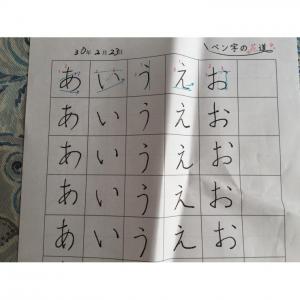 30年2月23日
ペン字の花道
あ い う え お
あ い う え お
あ い う え お
あ い う え お
あ い う え お